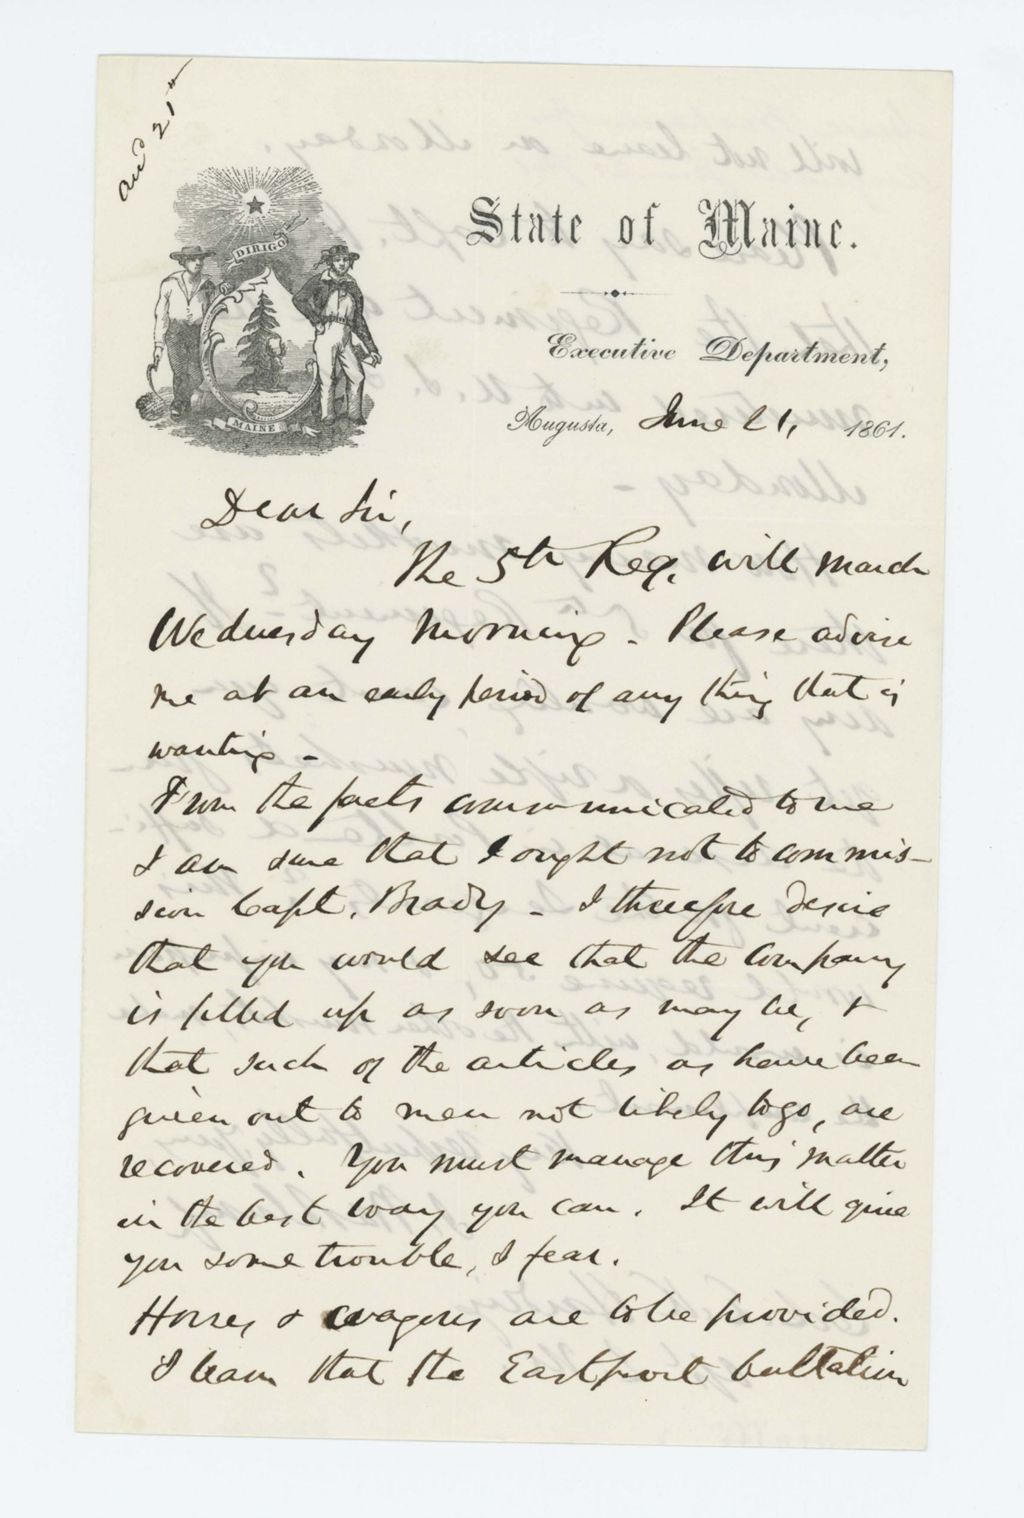 and 21st
DIRIGO
MAINE
State of Maine.
Executive Department,
Augusta, June 21, 1861.
Dear Sir,
The 5th Reg. will march
Wednesday morning - Please advise
me at an early period of any thing that is
wanting -
From the facts communicated to me
I am sure that I ought not to commis-
sion Capt. Brady - I therefore desire
that you would see that the company
is filled up as soon as may be, &
that such of the articles as have been
given out to men not likely to go, are
recovered. You must manage this matter
in the best way you can. It will give
you some trouble, I fear.
Horses & wagons are to be provided.
I learn that the Eastport battalion